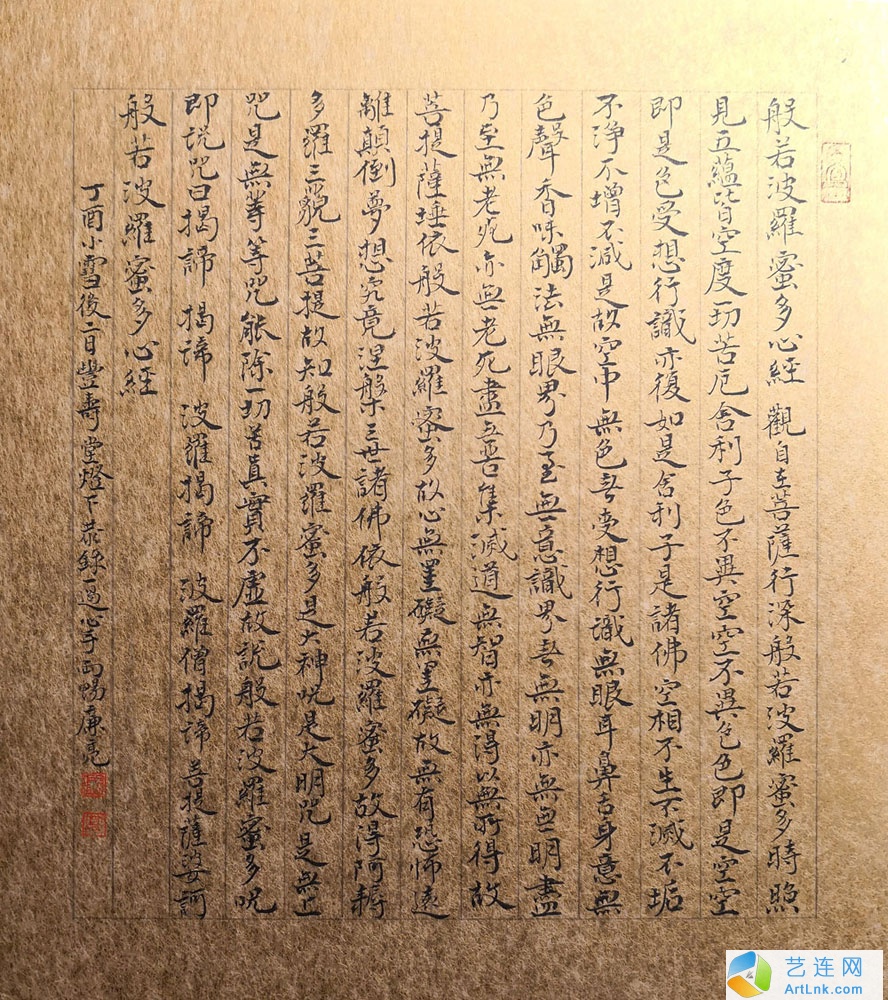 般若波羅蜜多心經 觀自在菩薩行深般若波羅蜜多時照
見五蘊皆空度一切苦厄舍利子色不異空空不異色色即是空空
即是色受想行識亦復如是舍利子是諸佛空相不生不滅不垢
不淨不增不減是故空中無色无受想行識無眼耳鼻舌身意無
色聲香味觸法無眼界乃至無意識界无無明亦無無明盡
乃至無老死亦無老死盡无苦集滅道無智亦無得以無所得故
菩提薩埵依般若波羅蜜多故心無罣礙無罣礙故無有恐怖遠
離顛倒夢想究竟涅槃三世諸佛依般若波羅蜜多故得阿耨
多羅三藐三菩提故知般若波羅蜜多是大神咒是大明咒是無上
咒是無等等咒能除一切苦真實不虛故說般若波羅蜜多咒
即說咒曰揭諦 揭諦 波羅揭諦 波羅僧揭諦 菩提薩婆訶
般若波羅蜜多心經
丁酉小雪後二日豐壽堂燈下恭錄一過心手兩暢廉亮
艺连网
ArtLnk.com